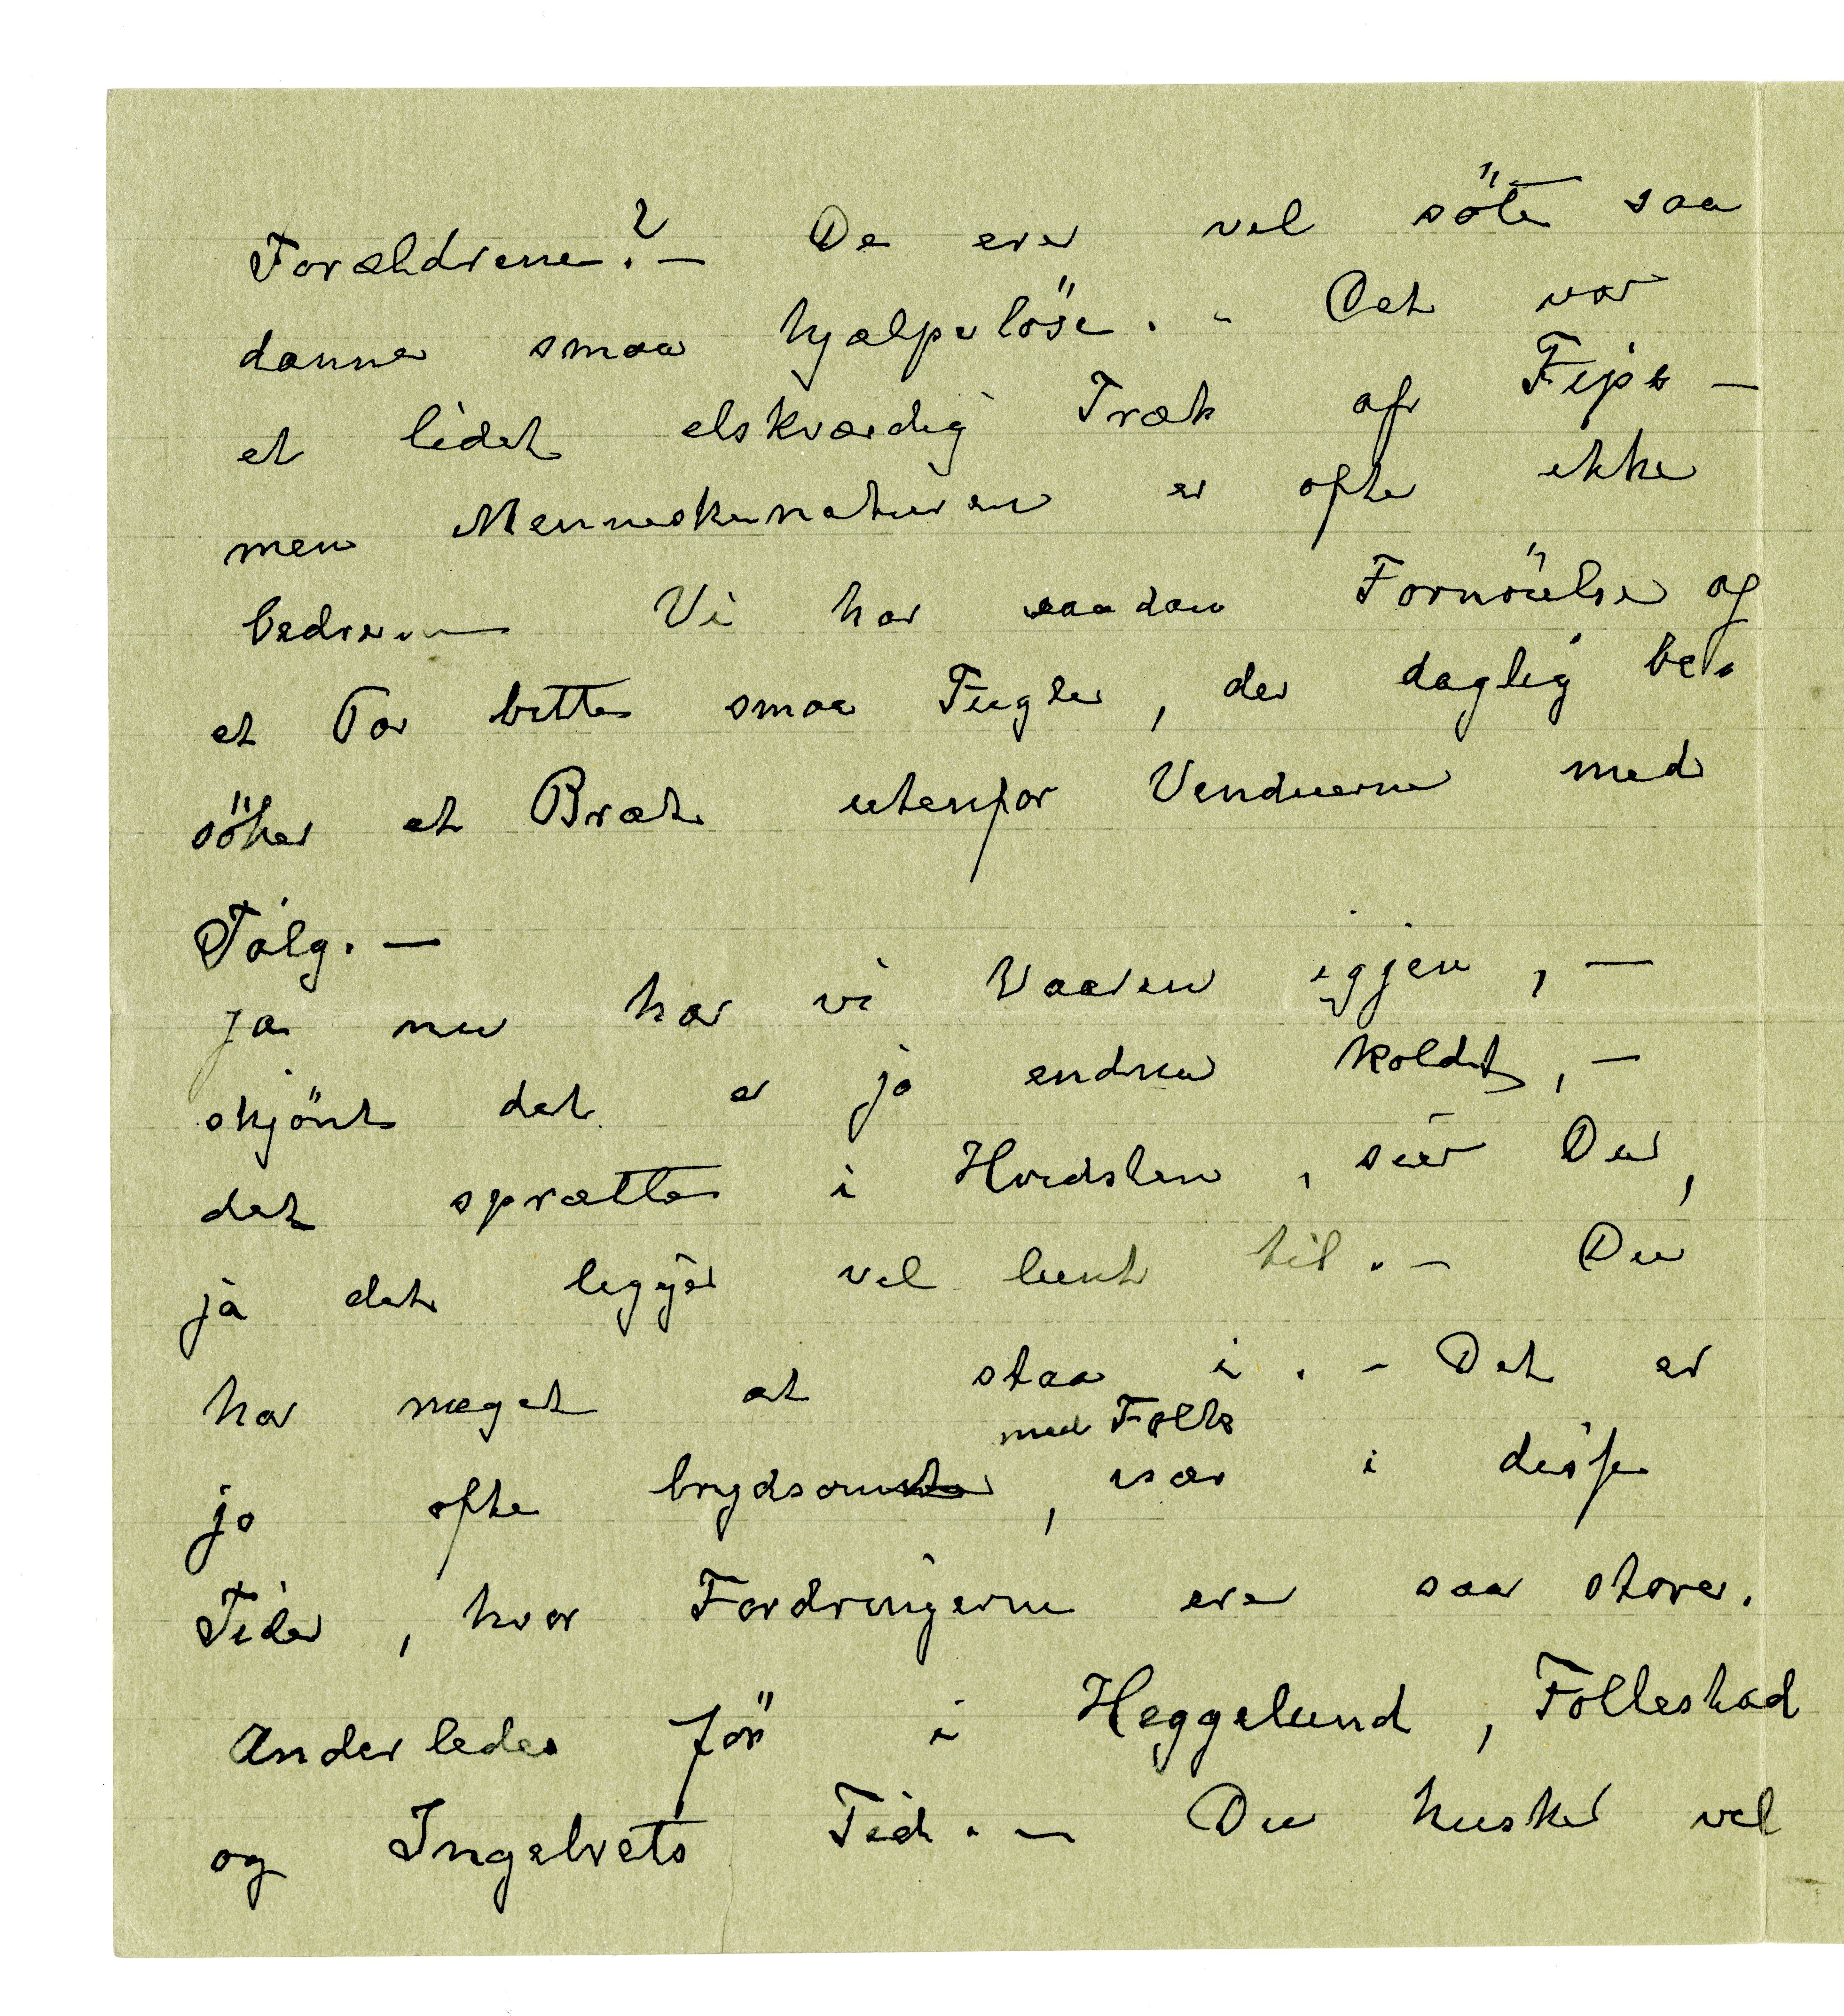 Forældrene? — De ere vel söte saa
danne smaa hjælpelöse. - Det var
et lidet elskværdig Træk af Fips —
men Menneskenaturen er ofte ikke
bedre — Vi har saadan Fornöielse af
et Par bitte smaa Fugle, der daglig be-
söker et Bræt utenfor Vinduerne med
Talg. —
Ja nu har vi Vaaren igjen, —
skjönt det er jo endnu koldt, —
det sprætter i Hvidsten, sier Du,
ja det ligger vel lunt til. - Du
har meget at staa i. - Det er
med Folk
jo ofte brydsomt, især i disse
Tider, hvor Fordringerne ere saa store.
Anderledes för i Heggelund, Follestad
og Ingelvets Tid. — Du husker vel